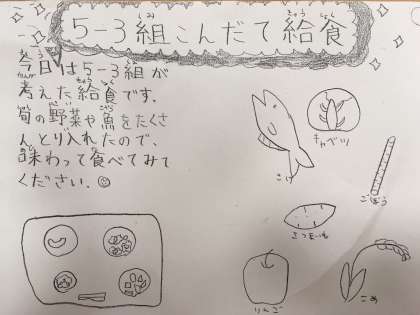 5-3組こんだて給食
今日は5-3組が
考えた給食です.
旬の野菜や魚をたくさ
んとり入れたので、
味わって食べてみて
ください.
キャベツ
さけ
ごぼう
さつまいも
りんご
こめ